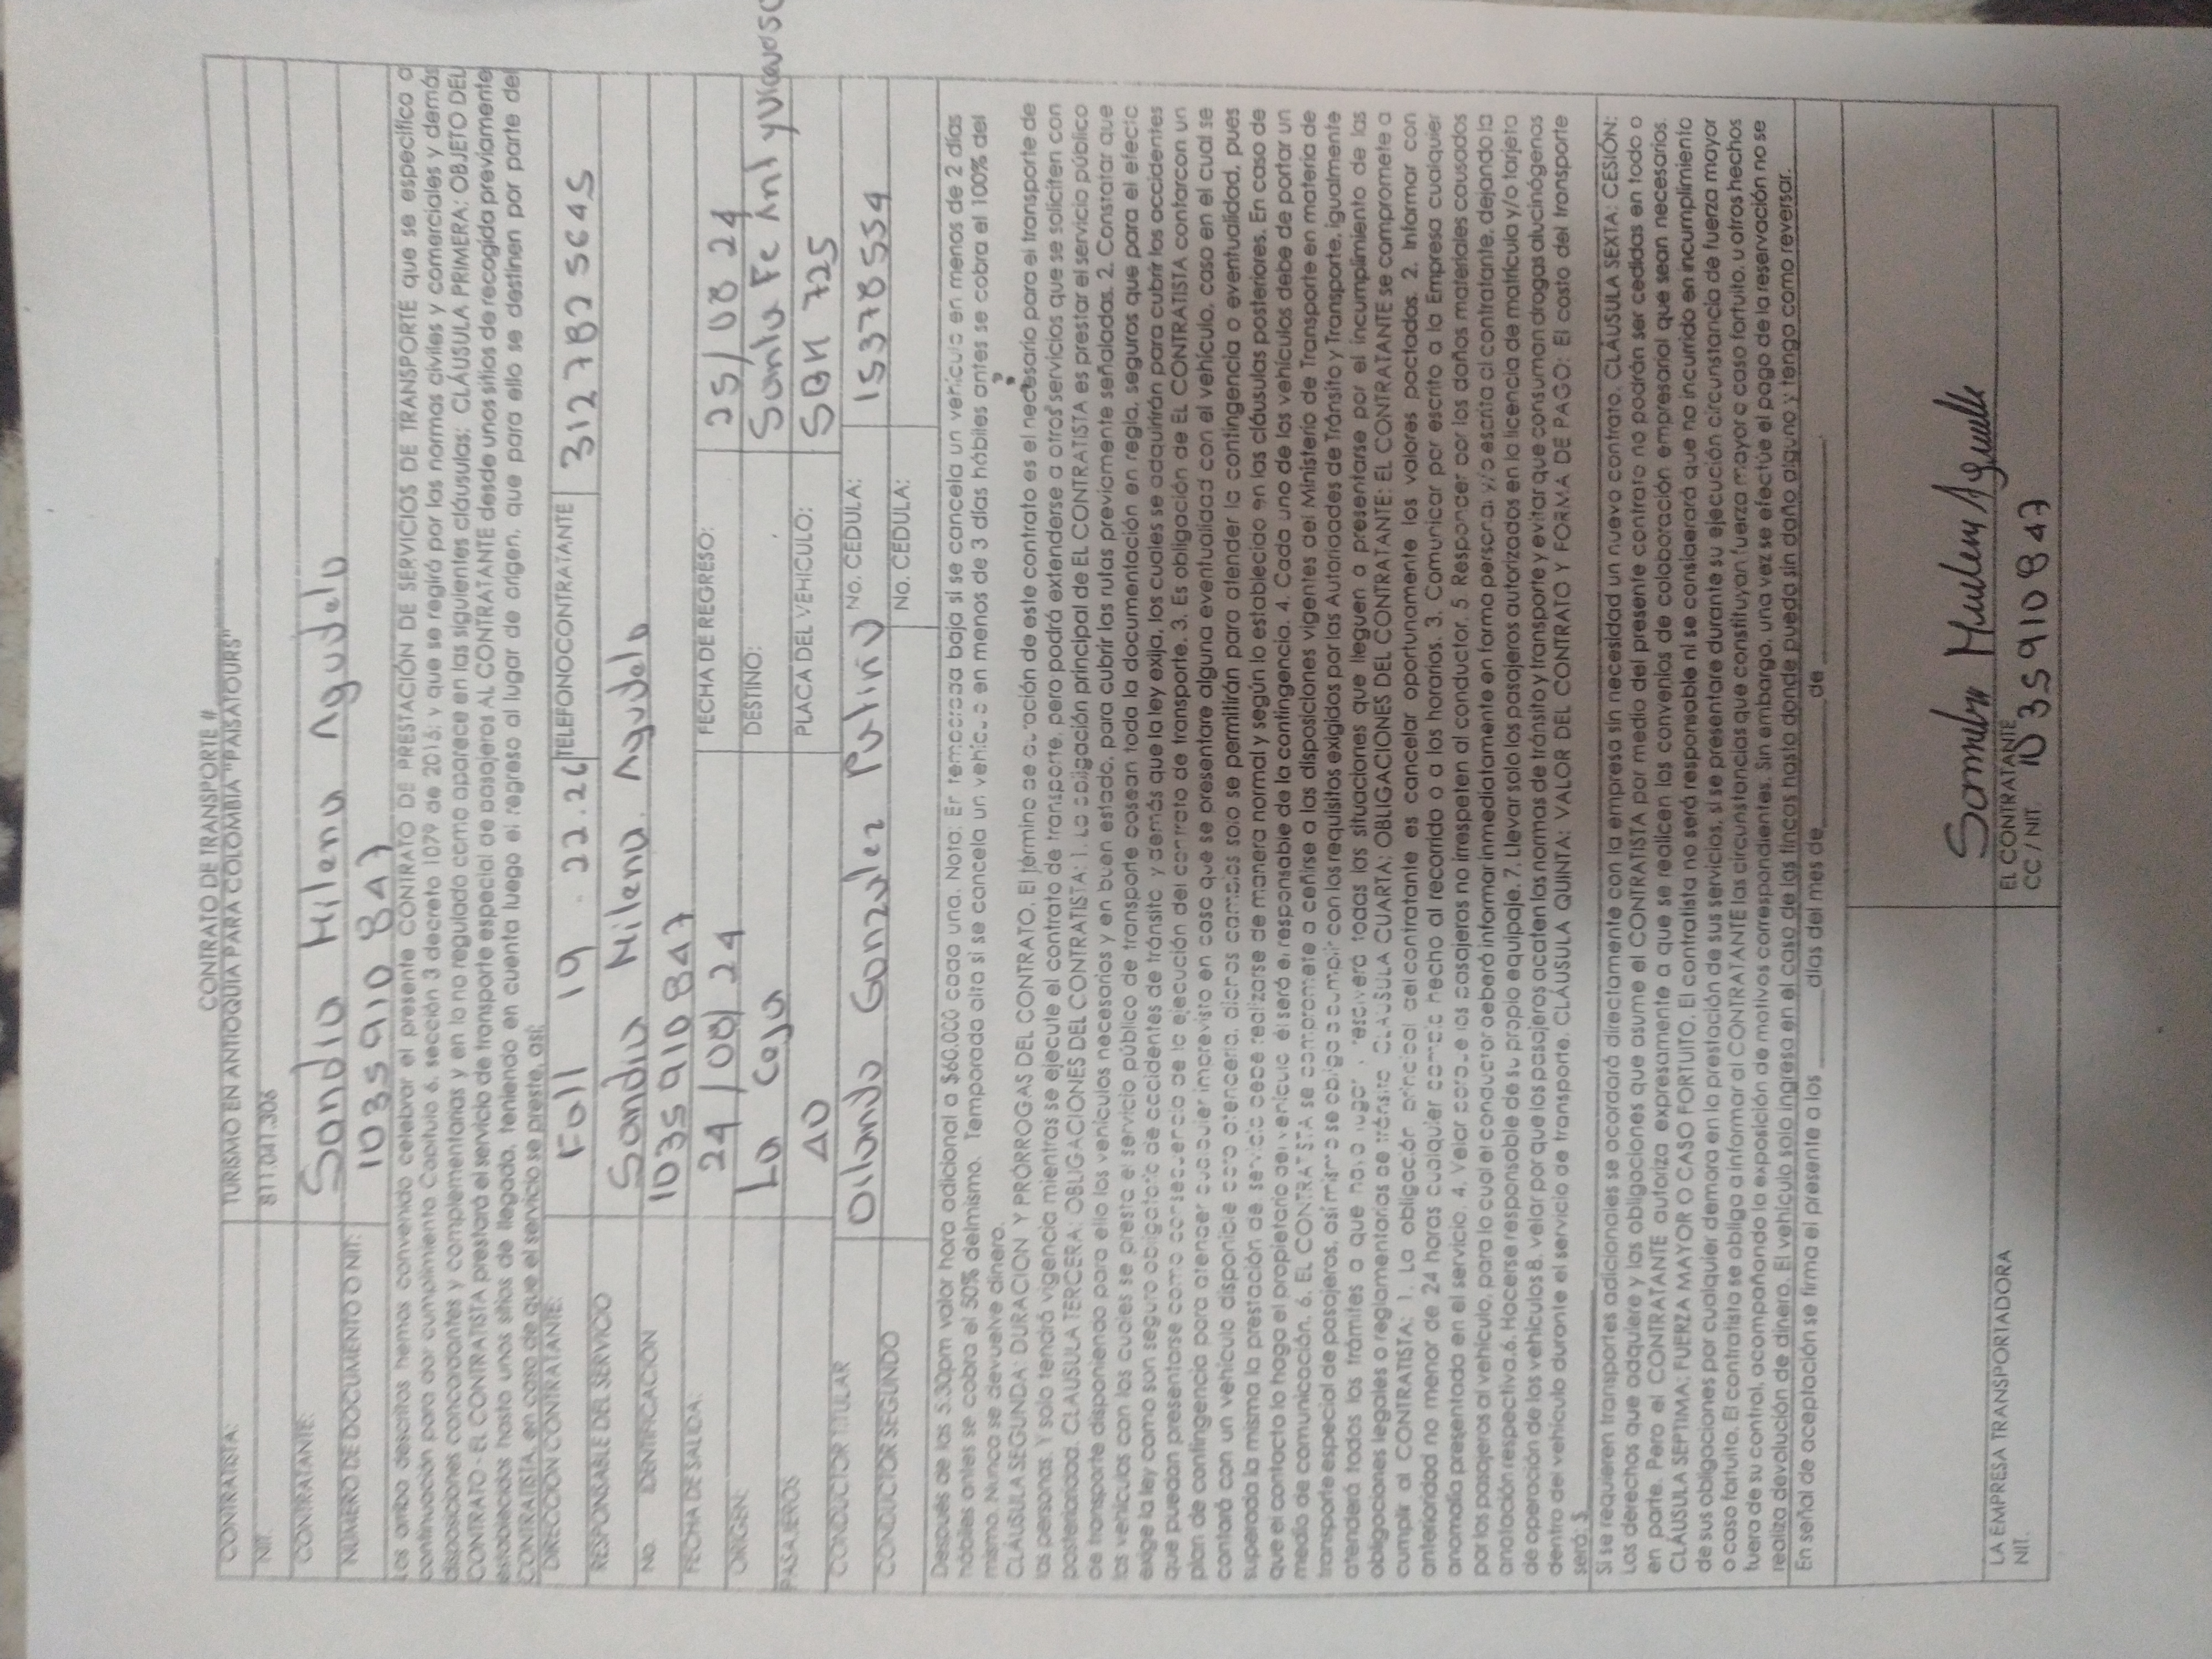 CONTRATO DE TRANSPORTE #
CONTRATISTA: TURISMO EN ANTIOQUIA PARA COLOMBIA "PAISATOURS"
NIT: 811.041.306
CONTRATANTE: Sandia Milena Agudelo
NUMERO DE DOCUMENTO O NIT: 1035910847
Los arriba descritos hemos convenido celebrar el presente CONTRATO DE PRESTACIÓN DE SERVICIOS DE TRANSPORTE que se especifica a
continuación para dar cumplimiento Capitulo 6, sección 3 decreto 1079 de 2015; y que se regirá por las normas civiles y comerciales y demás
disposiciones concordantes y complementarias y en lo no regulado como aparece en las siguientes cláusulas: CLÁUSULA PRIMERA: OBJETO DEL
CONTRATO - EL CONTRATISTA prestará el servicio de transporte especial de pasajeros AL CONTRATANTE desde unos sitios de recogida previamente
establecidos hasta unos sitios de llegada, teniendo en cuenta luego el regreso al lugar de origen, que para ello se destinen por parte del
CONTRATISTA, en caso de que el servicio se preste, así:
DIRECCIÓN CONTRATANTE: 19 . 22.26 TELEFONOCONTRATANTE 3127825645
RESPONSABLE DEL SERVICIO Sandia Milena Agudelo
No. IDENTIFICACION 1035910847
FECHA DE SALIDA: 24/08/24 FECHA DE REGRESO: 25/08 24
ORIGEN: La Ceja DESTINO: Santa Fe Ant y
PASAJEROS 40 PLACA DEL VEHICULO: 725
CONDUCTOR TITULAR Olando Gonzalez Patiño No. CEDULA: 15378554
CONDUCTOR SEGUNDO No. CEDULA:
Después de las 5.30pm valor hora adicional a $60.000 cada una. Nota: En temporada baja si se cancela un vehículo en menos de 2 días
hábiles antes se cobra el 50% del mismo. Temporada alta si se cancela un vehículo en menos de 3 días hábiles antes se cobra el 100% del
mismo. Nunca se devuelve dinero.
CLÁUSULA SEGUNDA: DURACION Y PRÓRROGAS DEL CONTRATO. El término de duración de este contrato es el necesario para el transporte de
las personas. Y solo tendrá vigencia mientras se ejecute el contrato de transporte, pero podrá extenderse a otros servicios que se soliciten con
posterioridad. CLAUSULA TERCERA: OBLIGACIONES DEL CONTRATISTA: 1. La obligación principal de EL CONTRATISTA es prestar el servicio público
de transporte disponiendo para ello los vehículos necesarios y en buen estado, para cubrir las rutas previamente señaladas. 2. Constatar que
los vehículos con los cuales se presta el servicio público de transporte posean toda la documentación en regla, seguros que para el efecto
exige la ley como son seguro obligatorio de accidentes de tránsito y demás que la ley exija, los cuales se adquirirán para cubrir los accidentes
que puedan presentarse como consecuencia de la ejecución del contrato de transporte. 3. Es obligación de EL CONTRATISTA contar con un
plan de contingencia para atender cualquier imprevisto en caso que se presentare alguna eventualidad con el vehículo, caso en el cual se
contará con un vehículo disponible para atenderla, dichos cambios solo se permitirán para atender la contingencia o eventualidad, pues
superada la misma la prestación de servicio debe realizarse de manera normal y según lo establecido en las cláusulas posteriores. En caso de
que el contacto lo haga el propietario del vehículo él será el responsable de la contingencia. 4. Cada uno de los vehículos debe de portar un
medio de comunicación. 6. EL CONTRATISTA se compromete a ceñirse a las disposiciones vigentes del Ministerio de Transporte en materia de
transporte especial de pasajeros, así mismo se obliga a cumplir con los requisitos exigidos por las Autoridades de Tránsito y Transporte, igualmente
atenderá todos los trámites a que haya lugar y resolverá todas las situaciones que lleguen a presentarse por el incumplimiento de las
obligaciones legales o reglamentarias de tránsito CLÁUSULA CUARTA: OBLIGACIONES DEL CONTRATANTE: EL CONTRATANTE se compromete a
cumplir al CONTRATISTA: 1. La obligación principal del contratante es cancelar oportunamente los valores pactados. 2. Informar con
anterioridad no menor de 24 horas cualquier cambio hecho al recorrido o a los horarios. 3. Comunicar por escrito a la Empresa cualquier
anomalía presentada en el servicio. 4. Velar porque los pasajeros no irrespeten al conductor. 5 Responder por los daños materiales causados
por los pasajeros al vehículo, para lo cual el conductor deberá informar inmediatamente en forma personal y/o escrita al contratante, dejando la
anotación respectiva.6. Hacerse responsable de su propio equipaje. 7. Llevar solo los pasajeros autorizados en la licencia de matrícula y/o tarjeta
de operación de los vehículos 8. velar por que los pasajeros acaten las normas de tránsito y transporte y evitar que consuman drogas alucinógenas
dentro del vehículo durante el servicio de transporte. CLÁUSULA QUINTA: VALOR DEL CONTRATO Y FORMA DE PAGO: El costo del transporte
será: $
Si se requieren transportes adicionales se acordará directamente con la empresa sin necesidad un nuevo contrato. CLÁUSULA SEXTA: CESIÓN:
Los derechos que adquiere y las obligaciones que asume el CONTRATISTA por medio del presente contrato no podrán ser cedidas en todo o
en parte. Pero el CONTRATANTE autoriza expresamente a que se realicen los convenios de colaboración empresarial que sean necesarios.
CLÁUSULA SEPTIMA: FUERZA MAYOR O CASO FORTUITO. El contratista no será responsable ni se considerará que no incurrido en incumplimiento
de sus obligaciones por cualquier demora en la prestación de sus servicios, si se presentare durante su ejecución circunstancia de fuerza mayor
o caso fortuito. El contratista se obliga a informar al CONTRATANTE las circunstancias que constituyan fuerza mayor o caso fortuito, u otros hechos
fuera de su control, acompañando la exposición de motivos correspondientes. Sin embargo, una vez se efectúe el pago de la reservación no se
realiza devolución de dinero. El vehículo solo ingresa en el caso de las fincas hasta donde pueda sin daño alguno y tenga como reversar.
En señal de aceptación se firma el presente a los ______ días del mes de ______ de ______.
LA EMPRESA TRANSPORTADORA EL CONTRATANTE
NIT. CC / NIT. 1035910847